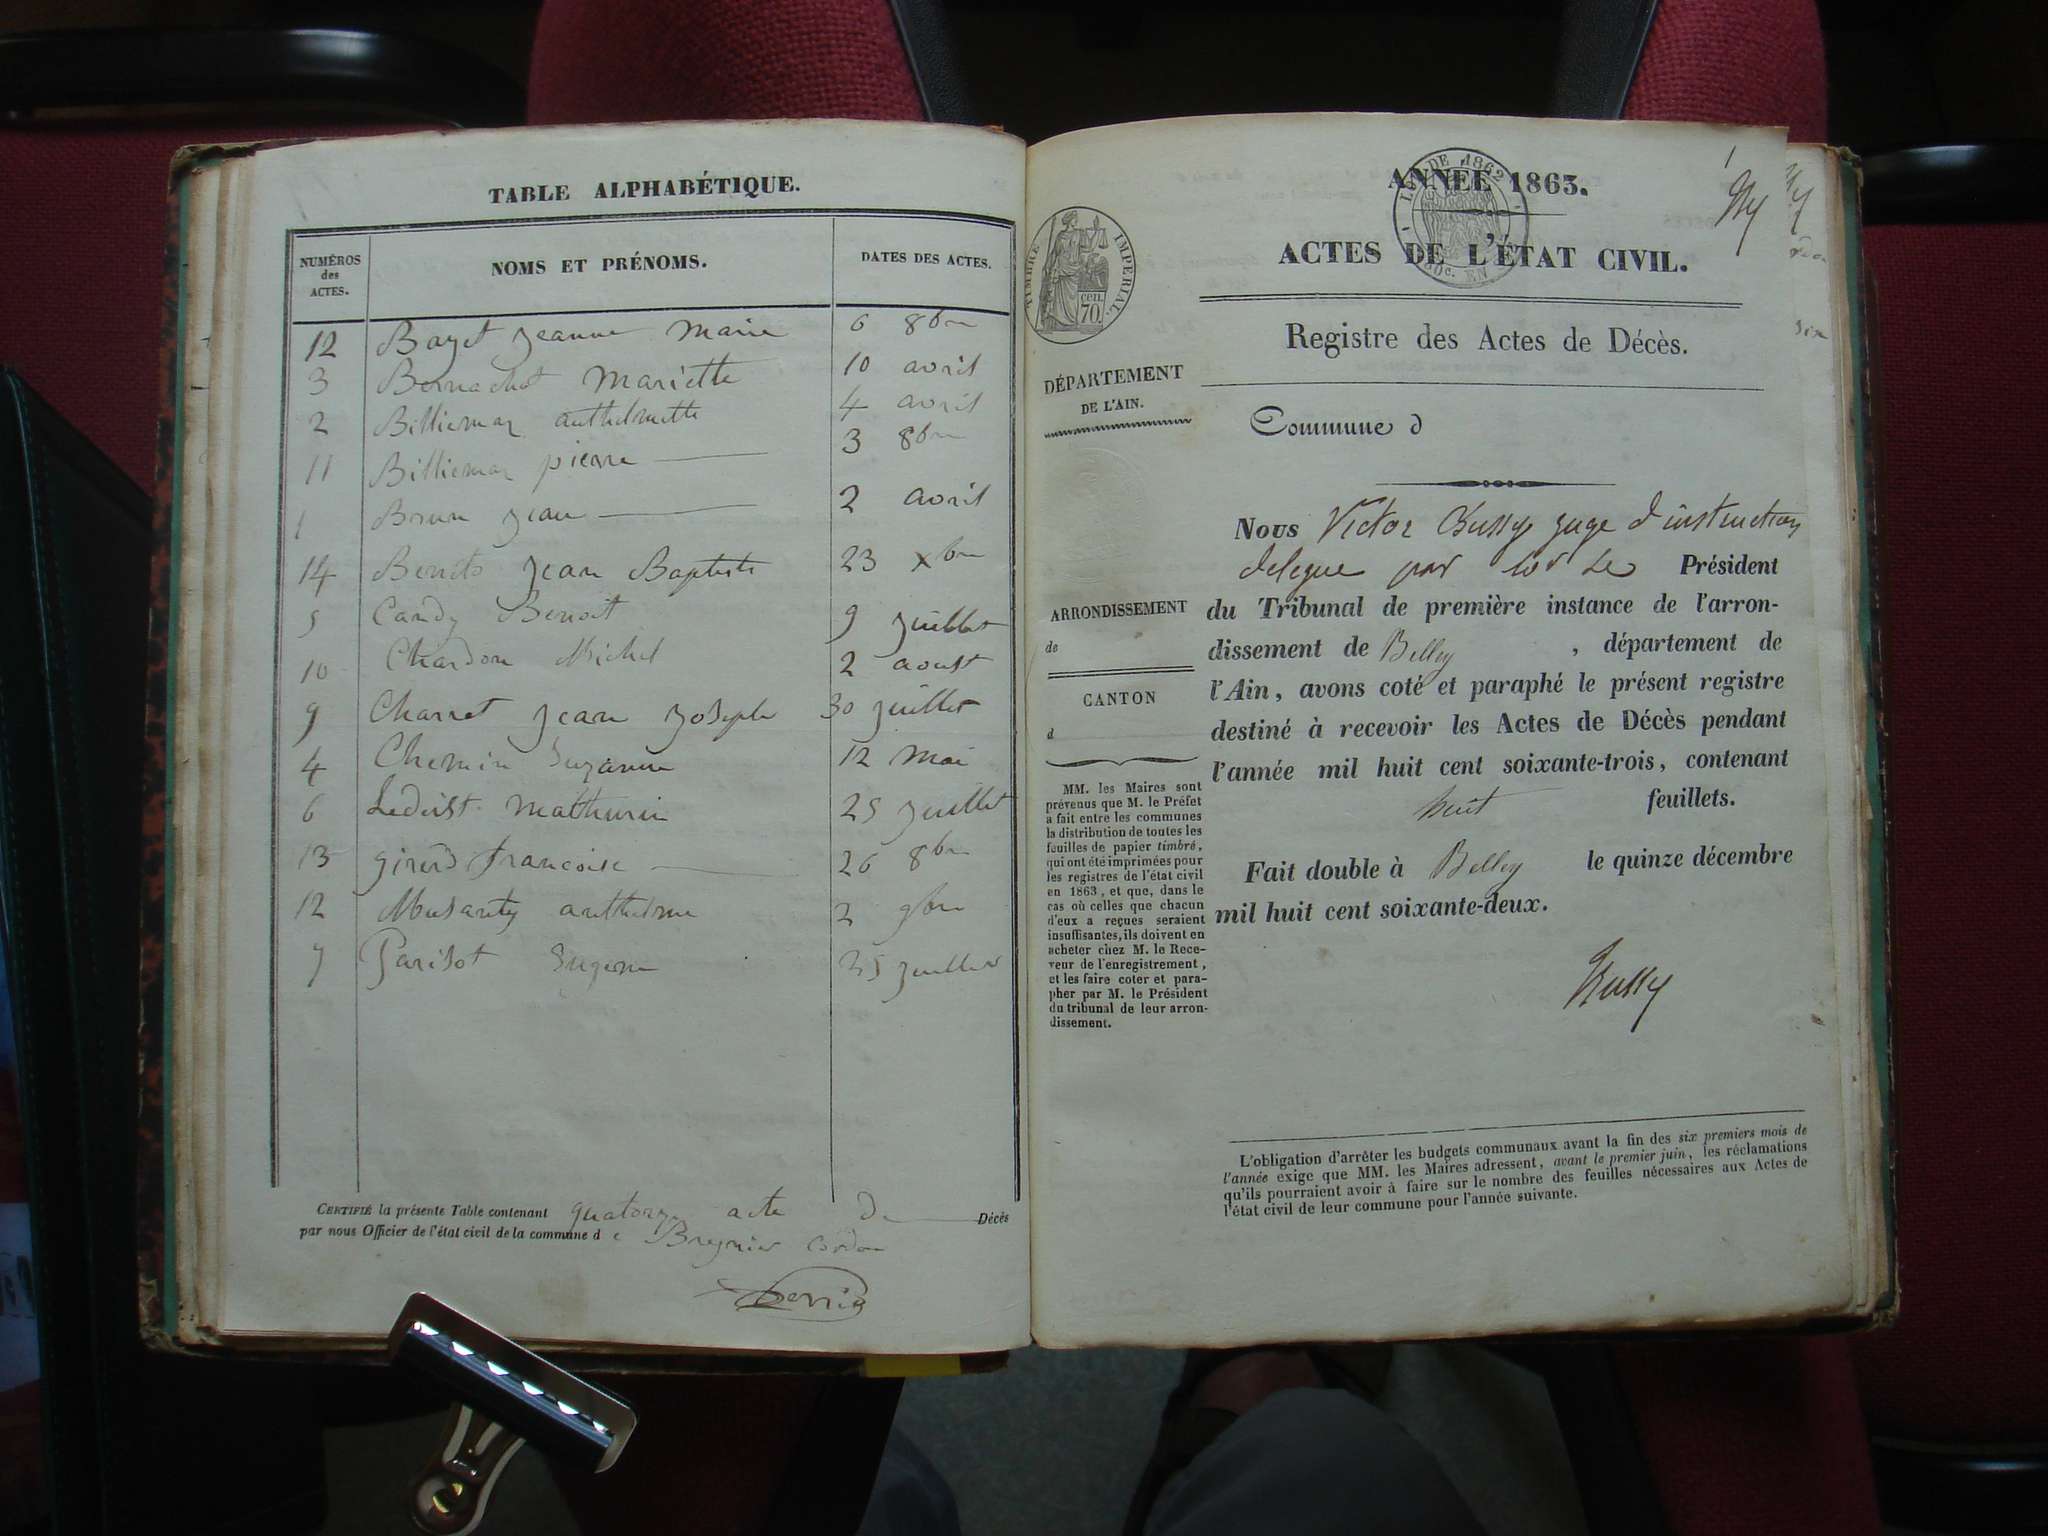 TABLE ALPHABÉTIQUE.
NUMÉROS des ACTES. NOMS ET PRÉNOMS. DATES DES ACTES.
12 Bayet Jeanne Marie 6 8bre
3 Mariette 10 avril
2 Billiemaz anthelmette 4 avril
11 Billiemaz pierre 3 8bre
1 Brun Jean 2 avril
14 Benoit Jean Baptiste 23 xbre
5 Candy Benoit 9 Juillet
10 Chardon Michel 2 aoust
9 Charret Jean Joseph 30 Juillet
4 Chemin Suzanne 12 mai
6 Mathurin 25 Juillet
13 francoise 26 8bre
12 anthelme 2 9bre
7 Parisot Eugene 25 Juillet
CERTIFIÉ la présente Table contenant quatorze acte de Décès
par nous Officier de l'état civil de la commune de Bregnier cordon
ANNÉE 1863.
ACTES DE L'ÉTAT CIVIL.
Registre des Actes de Décès.
TIMBRE IMPÉRIAL.
70 cen.
DE 1862
DÉPARTEMENT
DE L'AIN.
Commune d
ARRONDISSEMENT
de
CANTON
d
MM. les Maires sont
prévenus que M. le Préfet
a fait entre les communes
la distribution de toutes les
feuilles de papier timbré,
qui ont été imprimées pour
les registres de l'état civil
en 1863, et que, dans le
cas où celles que chacun
d'eux a reçues seraient
insuffisantes, ils doivent en
acheter chez M. le Rece-
veur de l'enregistrement,
et les faire coter et para-
pher par M. le Président
du tribunal de leur arron-
dissement.
Nous Victor Bussy juge d'instruction
delegue par Le Président
du Tribunal de première instance de l'arron-
dissement de Belley, département de
l'Ain, avons coté et paraphé le présent registre
destiné à recevoir les Actes de Décès pendant
l'année mil huit cent soixante-trois, contenant
huit feuillets.
Fait double à Belley le quinze décembre
mil huit cent soixante-deux.
Bussy
L'obligation d'arrêter les budgets communaux avant la fin des six premiers mois de
l'année exige que MM. les Maires adressent, avant le premier juin, les réclamations
qu'ils pourraient avoir à faire sur le nombre des feuilles nécessaires aux Actes de
l'état civil de leur commune pour l'année suivante.